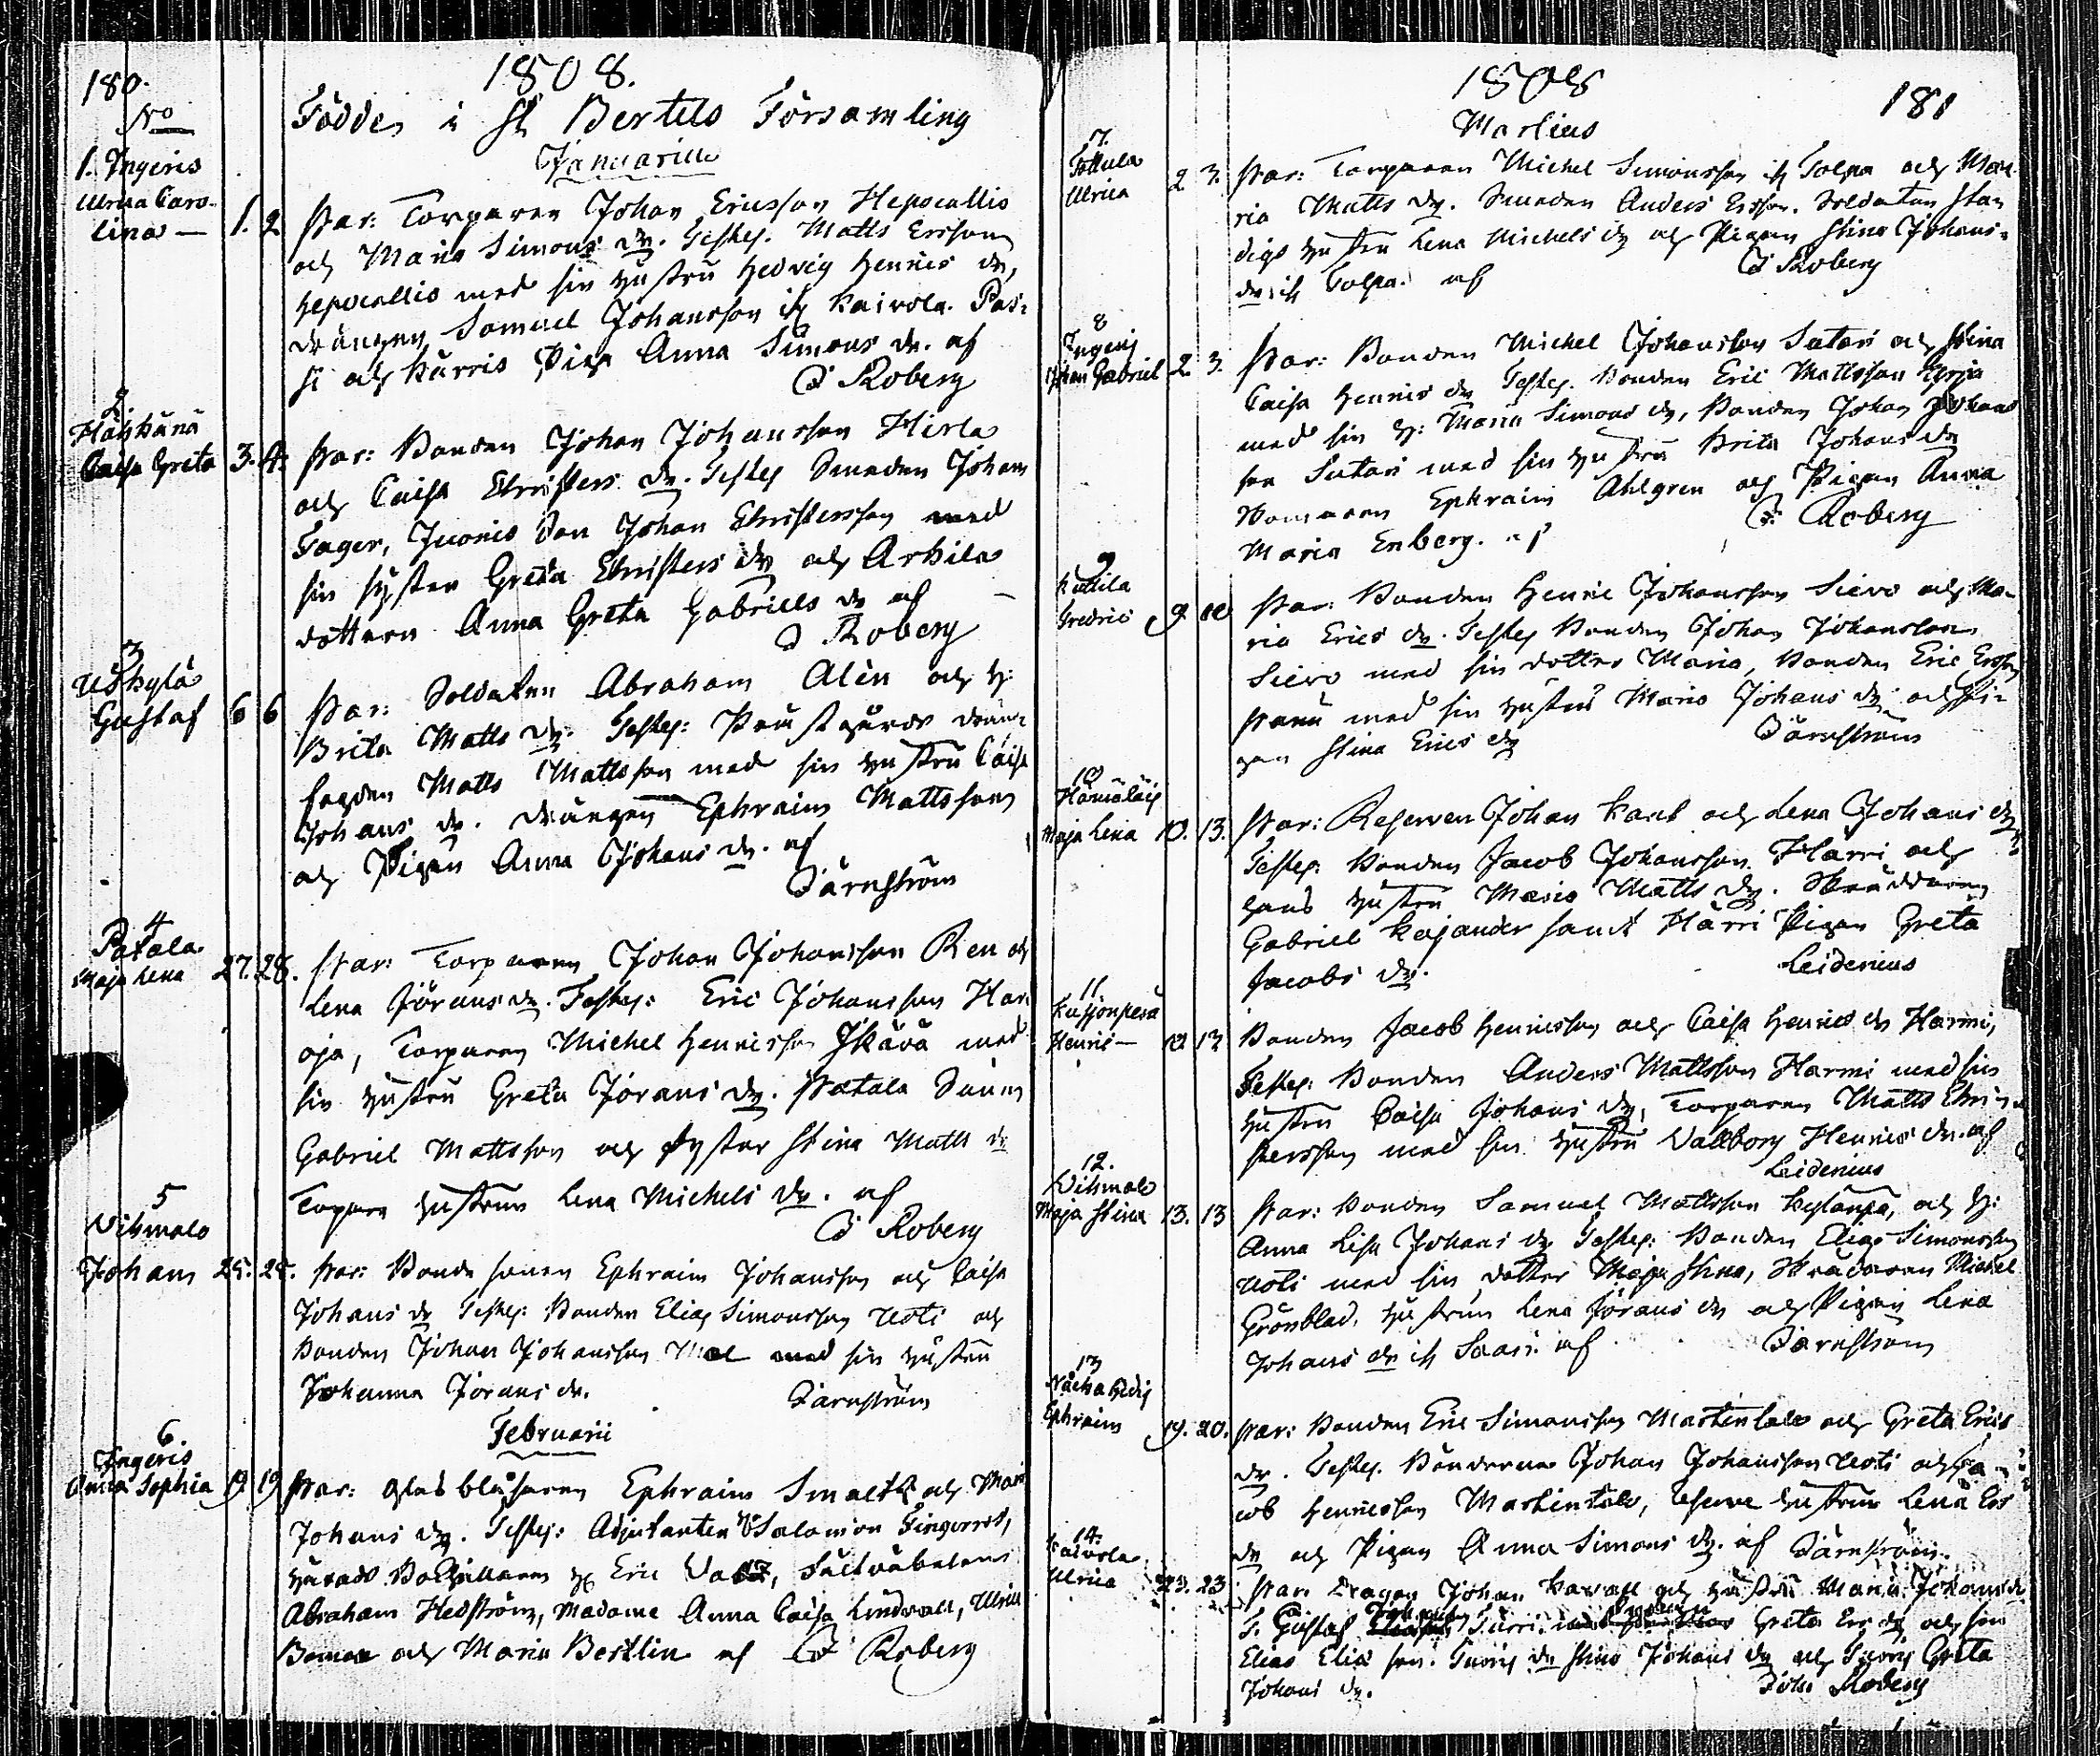 180.
1808.
No
Födde i St Bertils Församling
Januarii
1. Ingeris
Ulrica Caro-
lina — 1. 2. Par: Torparen Johan Ericsson Hepocallio
och Maria Simons dr. Testes. Matts Ersson
Hepocallio med sin hustru Hedvig Henrics dr,
drängen Samuel Johansson ifr Kaivola. Pas-
si och Kärris Piga Anna Simons dr. af
Roberg
2.
Caisa Greta 3. 4. Par: Bonden Johan Johansson Hirla
och Caisa Christers dr. Testes Smeden Johan
Fager, Juonis Son Johan Christersson med
sin syster Greta Christers dr och Arkila
dottern Anna Greta Gabriells dr af
Roberg
3
Uskyla
Gustaf 6 6 Par: Soldaten Abraham Alén och h:
Brita Matts dr. Testes:
fogden Matts Mattsson med sin hustru Caisa
Johans dr. drängen Ephraim Mattsson
och Pigan Anna Johans dr. af
Tärnström
4
Patala
Maja Lena 27. 28. Par: Torparen Johan Johansson Ren och
Lena Jörans dr. Testes: Eric Johansson Har-
oja, Torparen Michel Henricsson Ikävä med
sin hustru Greta Jörans dr. Patala Sonen
Gabriel Mattsson och Syster Stina Matts dr
Torpare hustrun Lena Michels dr. af
Roberg
5
Vihmalo
Johan 25. 25. Par: Bonde sonen Ephraim Johansson och Caisa
Johans dr Testes: Bonden Elias Simonsson Uoti och
Bonden Johan Johansson med sin hustru
Johanna Jörans dr. Tärnström
Februarii
6.
Ingeris
Anna Sophia 19 19 Par: Glasblåsaren Ephraim Smalth och Maria
Johans dr. Testes: Adjutanten Salomon
Eric
Abraham Hedström, Madame Anna Caisa Lindwall, Ulrica
och Maria Bertlin af Roberg
1808
181
Martius
7.
Tottula
Ulrica 2 3. Par: Torparen Michel Simonsson ifr Tolpa och Ma-
ria Matts dr. Smeden Anders Ersson. Soldaten Stan
digs hustru Lena Michels dr och Pigan Stina Johans-
dr ifr Tolpa. af Roberg
8
Ingeris
Johan Gabriel 2 3. Par: Bonden Michel Johansson Sutari och Stina
Caisa Henrics dr Testes. Bonden Eric Mattsson
med sin h: Maria Simons dr, Bonden Johan Johans
son Sutari med sin hustru Brita Johans dr
Ephraim Ahlgren och Pigan Anna
Maria Enberg. af Roberg
9
Kuttila
Fredric 9. 10 Par: Bonden Henric Johansson Sievo och Ma-
ria Erics dr. Testes Bonden Johan Johansson
Sievo med sin dotter Maria, Bonden Eric Ersson
med sin hustru Maria Johans dr och Pi-
gan Stina Erics dr Tärnström
10
Maja Lena 10. 13. Par: Reserven Johan Kant och Lena Johans dr
Testes: Bonden Jacob Johansson Härri och
hans hustru Maria Matts dr. Skräddaren
Gabriel Kajander samt Härri Pigan Greta
Jacobs dr. Leidenius
11
Kurjonperä
Henric — 12 13 Bonden Jacob Henricsson och Caisa Henrics dr Harmi,
Testes: Bonden Anders Mattsson Harmi med sin
hustru Caisa Johans dr, Torparen Matts Chri-
stersson med sin hustru Vallborg Henrics dr. af
Leidenius
12.
Vihmalo
Maja Stina 13. 13 Par: Bonden Samuel Mattsson Kylänpä, och h:
Anna Lisa Johans dr Testes: Bonden Elias Simonsson
Uoti med sin dotter Maja Stina, Skräddaren Michel
Grönblad, hustrun Lena Jörans dr och Pigan Lena
Johans dr ifr Saari af Tärnström
13
Ephraim 19. 20. Par: Bonden Eric Simonsson Martintalo och Greta Erics
dr. Testes. Bönderne Johan Johansson Uoti och Ja-
cob Henricsson Martintalo, Reserve hustrun Lena Ers
dr och Pigan Anna Simons dr. af Tärnström.
14.
Kaivola
Ulrica 23. 23 Par: Dragon Johan och hustru Maria Johans dr
T. Gustaf Greta Ers dr och
Elias Elias son. dr Stina Johans dr och Greta
Johans dr. Roberg